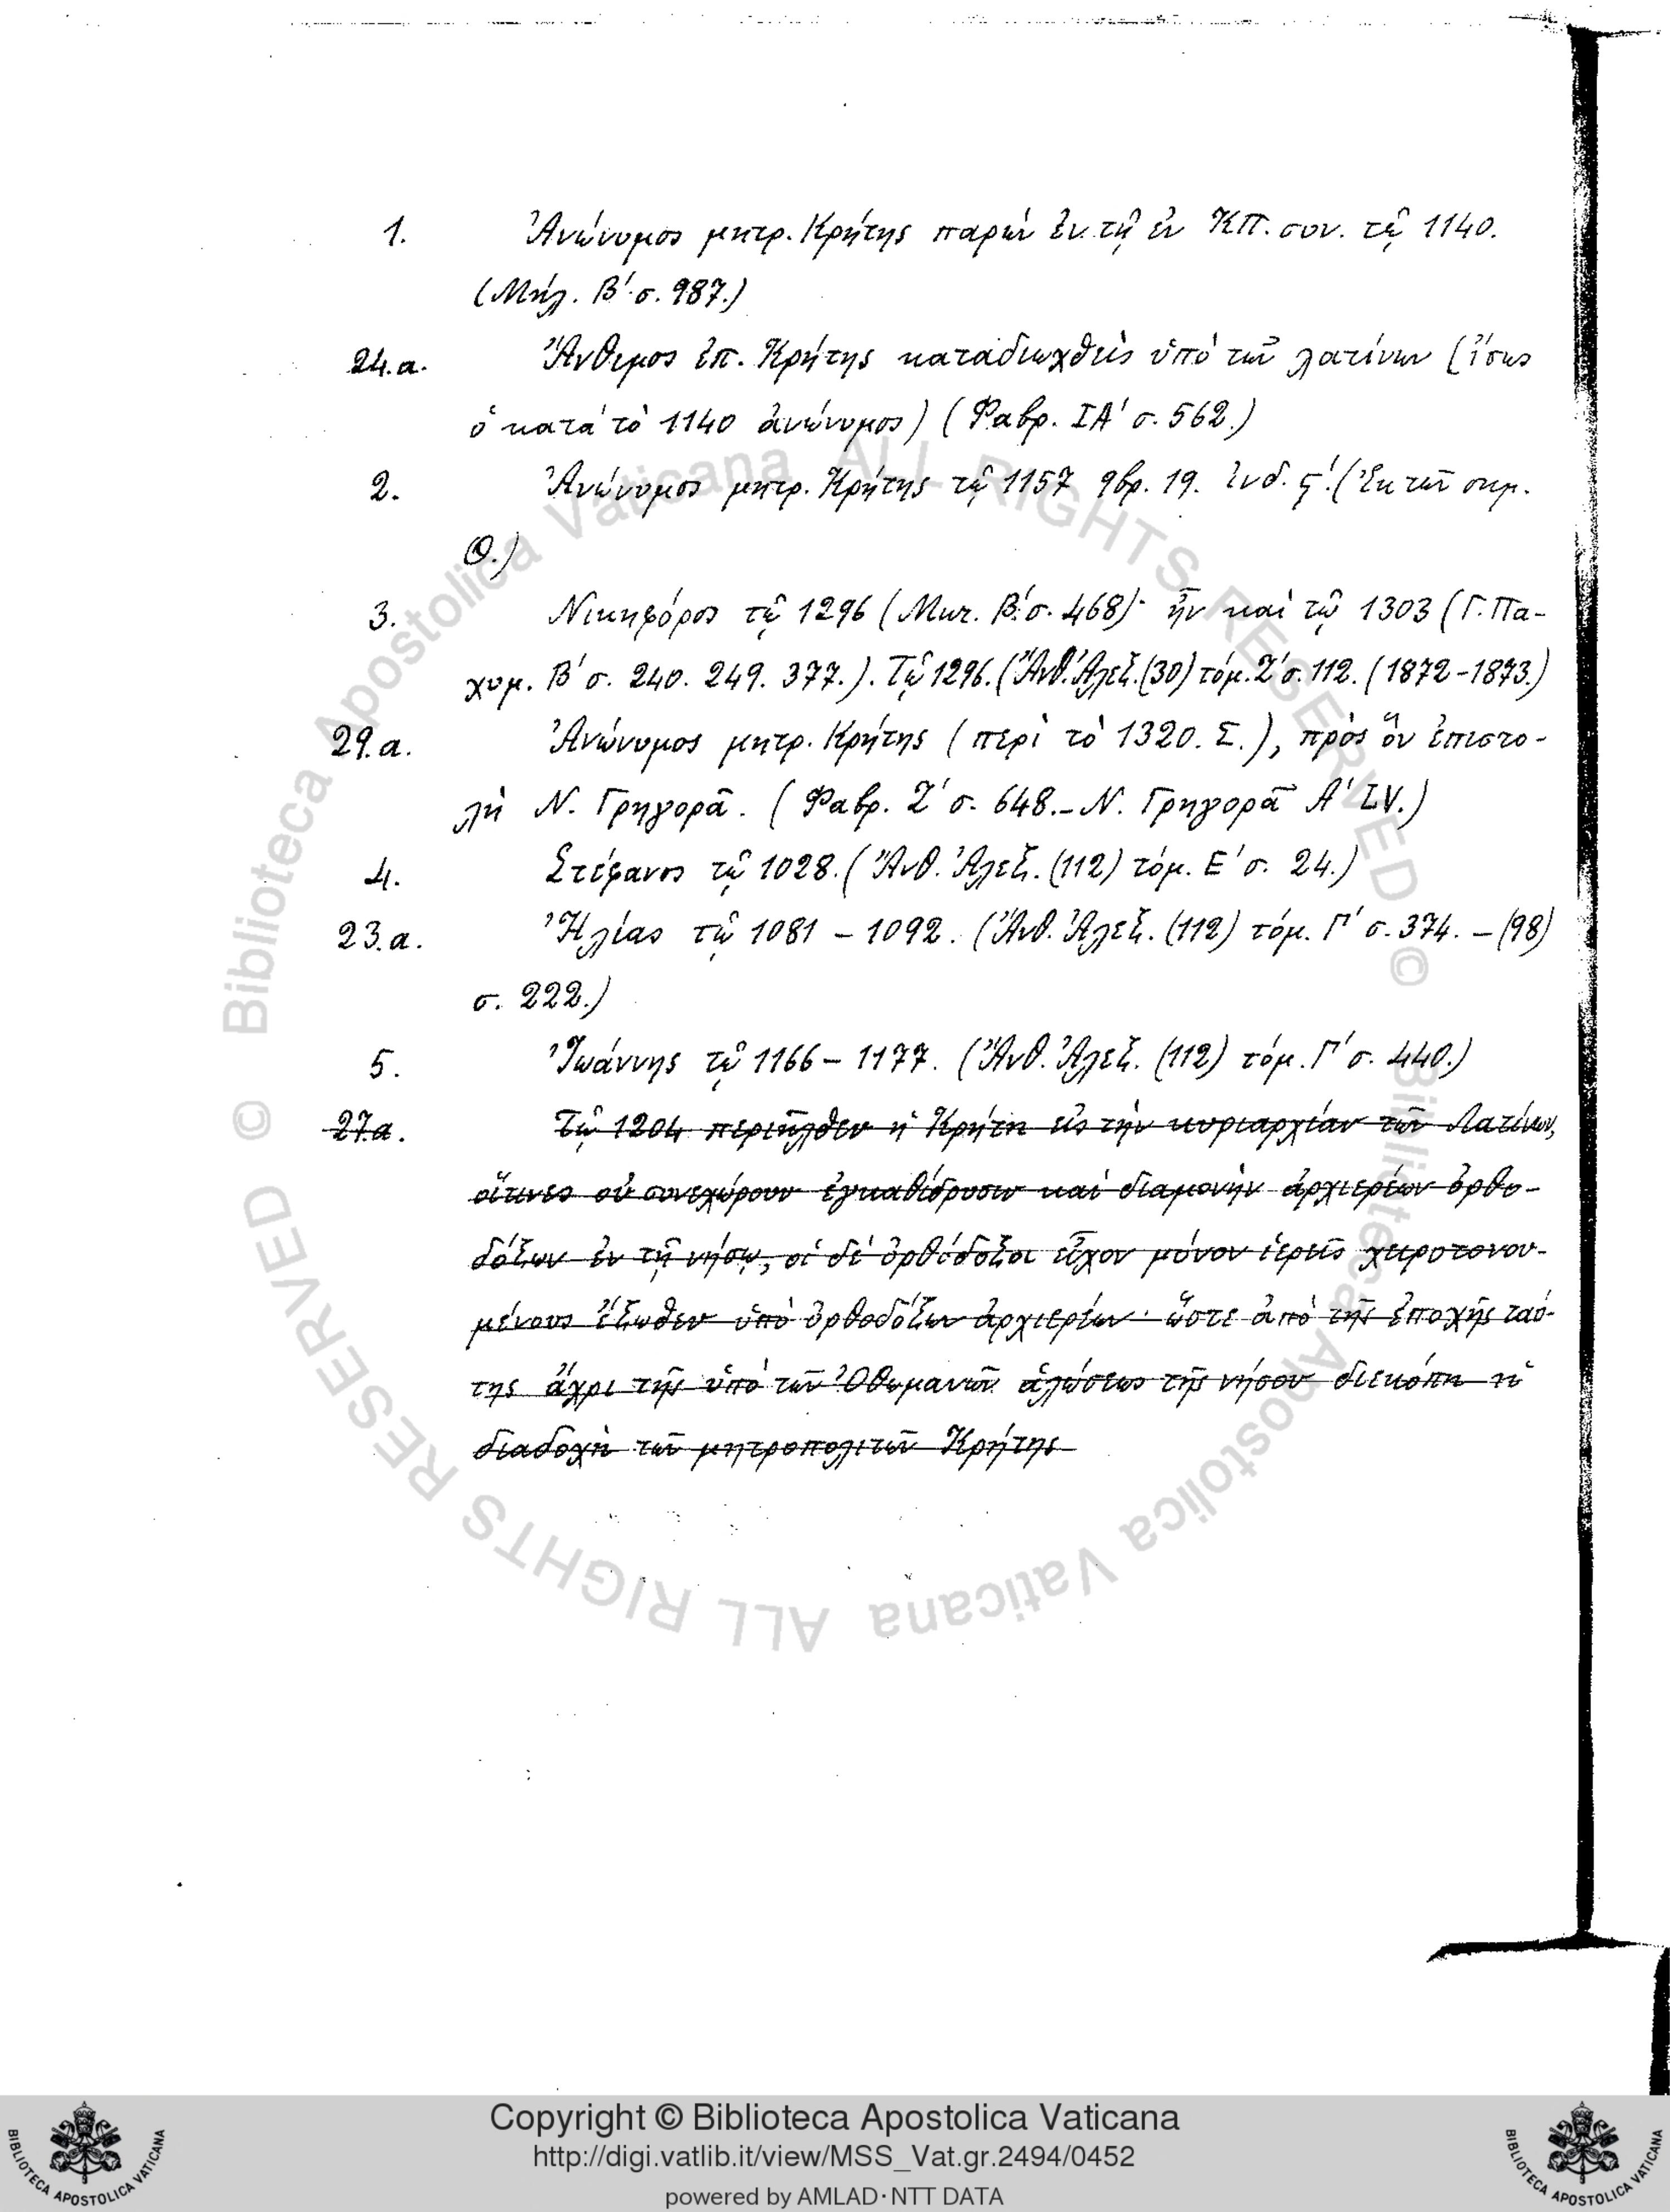 1. Ἀνώνυμος μητρ. Κρήτης παρὼν ἐν τῇ ἐν ΚΠ. συν. τῷ 1140.
(Μηλ. Β′ σ. 987.)
24.α. Ἄνθιμος ἐπ. Κρήτης καταδιωχθεὶς ὑπὸ τῶν λατίνων (ἴσως
ὁ κατὰ τὸ 1140 ἀνώνυμος) (Φαβρ. ΙΑ′ σ. 562.)
2. Ἀνώνυμος μητρ. Κρήτης τῷ 1157 9βρ. 19. ἰνδ. ϛ′. (Ἐκ τῶν σημ.
Θ.)
3. Νικηφόρος τῷ 1296 (Μικ. Β′. σ. 468)· ἦν καὶ τῷ 1303 (Γ. Πα-
χυμ. Β′ σ. 240. 249. 377.). Τῷ 1296. (Ἄνθ. Ἀλεξ. (30) τόμ. Ζ′ σ. 112. (1872-1873.)
29.α. Ἀνώνυμος μητρ. Κρήτης (περὶ τὸ 1320. Σ.), πρὸς ὃν ἐπιστο-
λὴ Ν. Γρηγορᾶ. (Φαβρ. Ζ′ σ. 648.– Ν. Γρηγορᾶ Α′ LV.)
4. Στέφανος τῷ 1028. (Ἄνθ. Ἀλεξ. (112) τόμ. Ε′ σ. 24.)
23.α. Ἠλίας τῷ 1081 – 1092. (Ἄνθ. Ἀλεξ. (112) τόμ. Γ′ σ. 374. – (98)
σ. 222.)
5. Ἰωάννης τῷ 1166 – 1177. (Ἄνθ. Ἀλεξ. (112) τόμ. Γ′ σ. 440.)
27.α. Τῷ 1204 περιῆλθεν ἡ Κρήτη εἰς τὴν κυριαρχίαν τῶν Λατίνων,
οἵτινες οὐ συνεχώρουν ἐγκαθίδρυσιν καὶ διαμονὴν ἀρχιερέων ὀρθο-
δόξων ἐν τῇ νήσῳ, οἱ δὲ ὀρθόδοξοι εἶχον μόνον ἱερεῖς χειροτονου-
μένους ἔξωθεν ὑπὸ ὀρθοδόξων ἀρχιερέων· ὥστε ἀπὸ τῆς ἐποχῆς ταύ-
της ἄχρι τῆς ὑπὸ τῶν Ὀθωμανῶν ἁλώσεως τῆς νήσου διεκόπη ἡ
διαδοχὴ τῶν μητροπολιτῶν Κρήτης
© Biblioteca Apostolica Vaticana ALL RIGHTS RESERVED © Biblioteca Apostolica Vaticana ALL RIGHTS RESERVED
Copyright © Biblioteca Apostolica Vaticana
http://digi.vatlib.it/view/MSS_Vat.gr.2494/0452
powered by AMLAD·NTT DATA
BIBLIOTECA APOSTOLICA VATICANA
BIBLIOTECA APOSTOLICA VATICANA